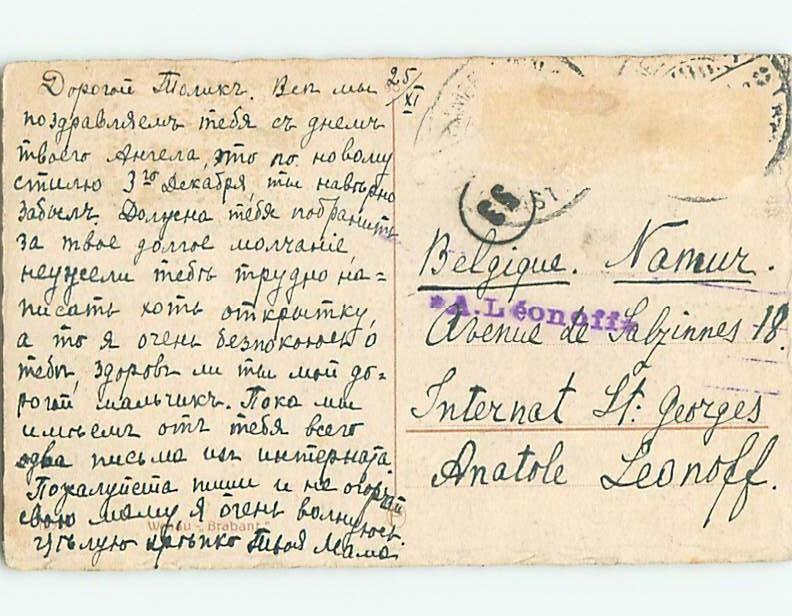 Дорогой Толикъ. Всѣ мы
поздравляемъ тебя съ днемъ
твоего Ангела, это по новому
стилю 3го Декабря, ты навѣрно
забылъ. Должна тебя побранить
за твое долгое молчаніе,
неужели тебѣ трудно на=
писать хоть открытку,
а то я очень безпокоюсь о
тебѣ, здоровъ ли ты мой до=
рогой мальчикъ. Пока мы
имѣемъ отъ тебя всего
два письма изъ интерната.
Пожалуйста пиши и не огорчай
свою маму я очень волнуюсь.
Цѣлую крѣпко Твоя Мама.
25/XI
"Brabant"
53
Belgique. Namur.
*A.Léonoff*
Avenue de Salzinnes 18.
Internat St: Georges
Anatole Leonoff.